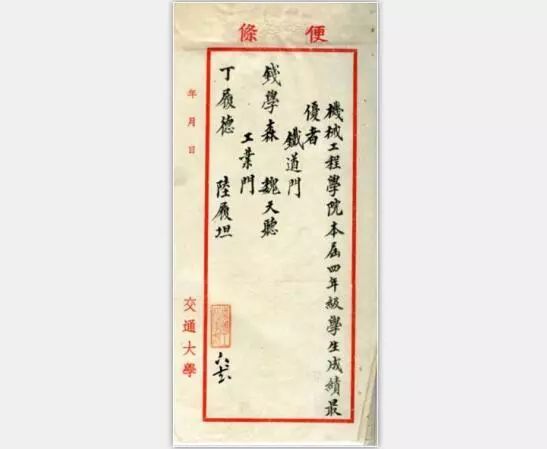 便條
機械工程學院本屆四年級學生成績最
優者
鐵道門
錢學森 魏天聽
工業門
丁履德 陸履坦
年月日
交通大學